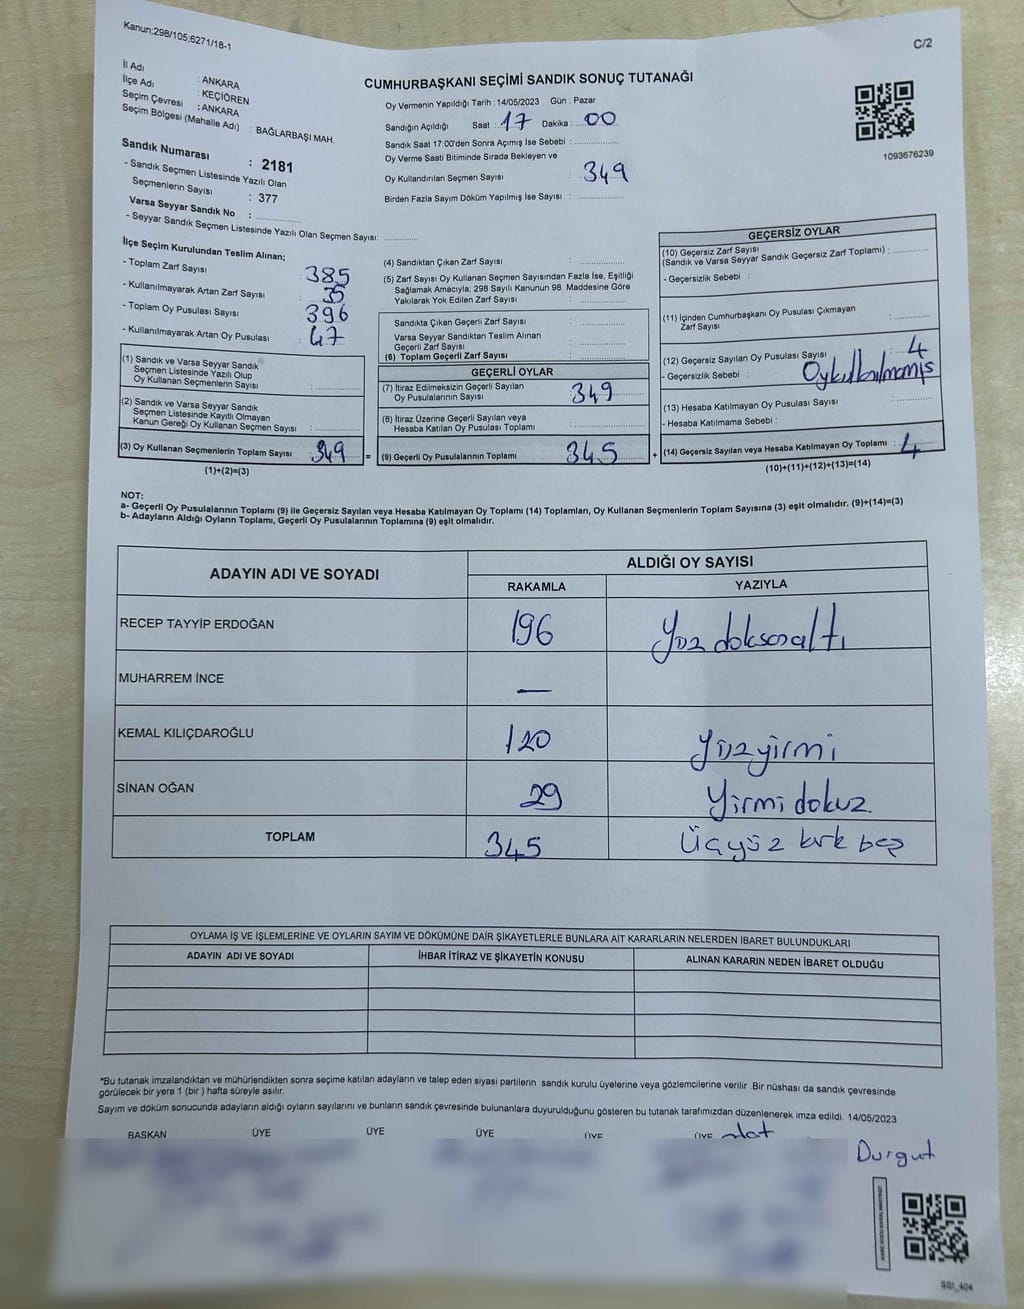 Kanun:298/105;6271/18-1
C/2
İl Adı : ANKARA
İlçe Adı : KEÇİÖREN
Seçim Çevresi : ANKARA
Seçim Bölgesi (Mahalle Adı) : BAĞLARBAŞI MAH.
Sandık Numarası : 2181
- Sandık Seçmen Listesinde Yazılı Olan
Seçmenlerin Sayısı : 377
Varsa Seyyar Sandık No : ..............
- Seyyar Sandık Seçmen Listesinde Yazılı Olan Seçmen Sayısı: ............
CUMHURBAŞKANI SEÇİMİ SANDIK SONUÇ TUTANAĞI
Oy Vermenin Yapıldığı Tarih : 14/05/2023 Gün : Pazar
Sandığın Açıldığı Saat : 17 Dakika : 00
Sandık Saat 17:00'den Sonra Açımış İse Sebebi : ..............
Oy Verme Saati Bitiminde Sırada Bekleyen ve
Oy Kullandırılan Seçmen Sayısı : 349
Birden Fazla Sayım Döküm Yapılmış İse Sayısı : ..............
1093676239
İlçe Seçim Kurulundan Teslim Alınan;
- Toplam Zarf Sayısı : 385
- Kullanılmayarak Artan Zarf Sayısı : 35
- Toplam Oy Pusulası Sayısı : 396
- Kullanılmayarak Artan Oy Pusulası : 47
(1) Sandık ve Varsa Seyyar Sandık
Seçmen Listesinde Yazılı Olup
Oy Kullanan Seçmenlerin Sayısı : ..............
(2) Sandık ve Varsa Seyyar Sandık
Seçmen Listesinde Kayıtlı Olmayan
Kanun Gereği Oy Kullanan Seçmen Sayısı : ..............
(3) Oy Kullanan Seçmenlerin Toplam Sayısı : 349 =
(1)+(2)=(3)
(4) Sandıktan Çıkan Zarf Sayısı : ..............
(5) Zarf Sayısı Oy Kullanan Seçmen Sayısından Fazla İse, Eşitliği
Sağlamak Amacıyla; 298 Sayılı Kanunun 98. Maddesine Göre
Yakılarak Yok Edilen Zarf Sayısı : ..............
Sandıkta Çıkan Geçerli Zarf Sayısı : ..............
Varsa Seyyar Sandıktan Teslim Alınan
Geçerli Zarf Sayısı : ..............
(6) Toplam Geçerli Zarf Sayısı : ..............
GEÇERLİ OYLAR
(7) İtiraz Edilmeksizin Geçerli Sayılan
Oy Pusulalarının Sayısı : 349
(8) İtiraz Üzerine Geçerli Sayılan veya
Hesaba Katılan Oy Pusulası Toplamı : ..............
(9) Geçerli Oy Pusulalarının Toplamı : 345 +
GEÇERSİZ OYLAR
(10) Geçersiz Zarf Sayısı
(Sandık ve Varsa Seyyar Sandık Geçersiz Zarf Toplamı) : ............
- Geçersizlik Sebebi :
(11) İçinden Cumhurbaşkanı Oy Pusulası Çıkmayan
Zarf Sayısı : ............
(12) Geçersiz Sayılan Oy Pusulası Sayısı : 4
- Geçersizlik Sebebi :
(13) Hesaba Katılmayan Oy Pusulası Sayısı : ............
- Hesaba Katılmama Sebebi :
(14) Geçersiz Sayılan veya Hesaba Katılmayan Oy Toplamı : 4
(10)+(11)+(12)+(13)=(14)
NOT:
a- Geçerli Oy Pusulalarının Toplamı (9) ile Geçersiz Sayılan veya Hesaba Katılmayan Oy Toplamı (14) Toplamları, Oy Kullanan Seçmenlerin Toplam Sayısına (3) eşit olmalıdır. (9)+(14)=(3)
b- Adayların Aldığı Oyların Toplamı, Geçerli Oy Pusulalarının Toplamına (9) eşit olmalıdır.
ADAYIN ADI VE SOYADI ALDIĞI OY SAYISI
RAKAMLA YAZIYLA
RECEP TAYYİP ERDOĞAN 196 Yüz doksan altı
MUHARREM İNCE —
KEMAL KILIÇDAROĞLU 120 Yüz yirmi
SİNAN OĞAN 29 Yirmi dokuz
TOPLAM 345 Üçyüz kırk beş
OYLAMA İŞ VE İŞLEMLERİNE VE OYLARIN SAYIM VE DÖKÜMÜNE DAİR ŞİKAYETLERLE BUNLARA AİT KARARLARIN NELERDEN İBARET BULUNDUKLARI
ADAYIN ADI VE SOYADI İHBAR İTİRAZ VE ŞİKAYETİN KONUSU ALINAN KARARIN NEDEN İBARET OLDUĞU
*Bu tutanak imzalandıktan ve mühürlendikten sonra seçime katılan adayların ve talep eden siyasi partilerin sandık kurulu üyelerine veya gözlemcilerine verilir .Bir nüshası da sandık çevresinde
görülecek bir yere 1 (bir ) hafta süreyle asılır.
Sayım ve döküm sonucunda adayların aldığı oyların sayılarını ve bunların sandık çevresinde bulunanlara duyurulduğunu gösteren bu tutanak tarafımızdan düzenlenerek imza edildi. 14/05/2023
BAŞKAN ÜYE ÜYE ÜYE ÜYE ÜYE
Durgut
SSI_404